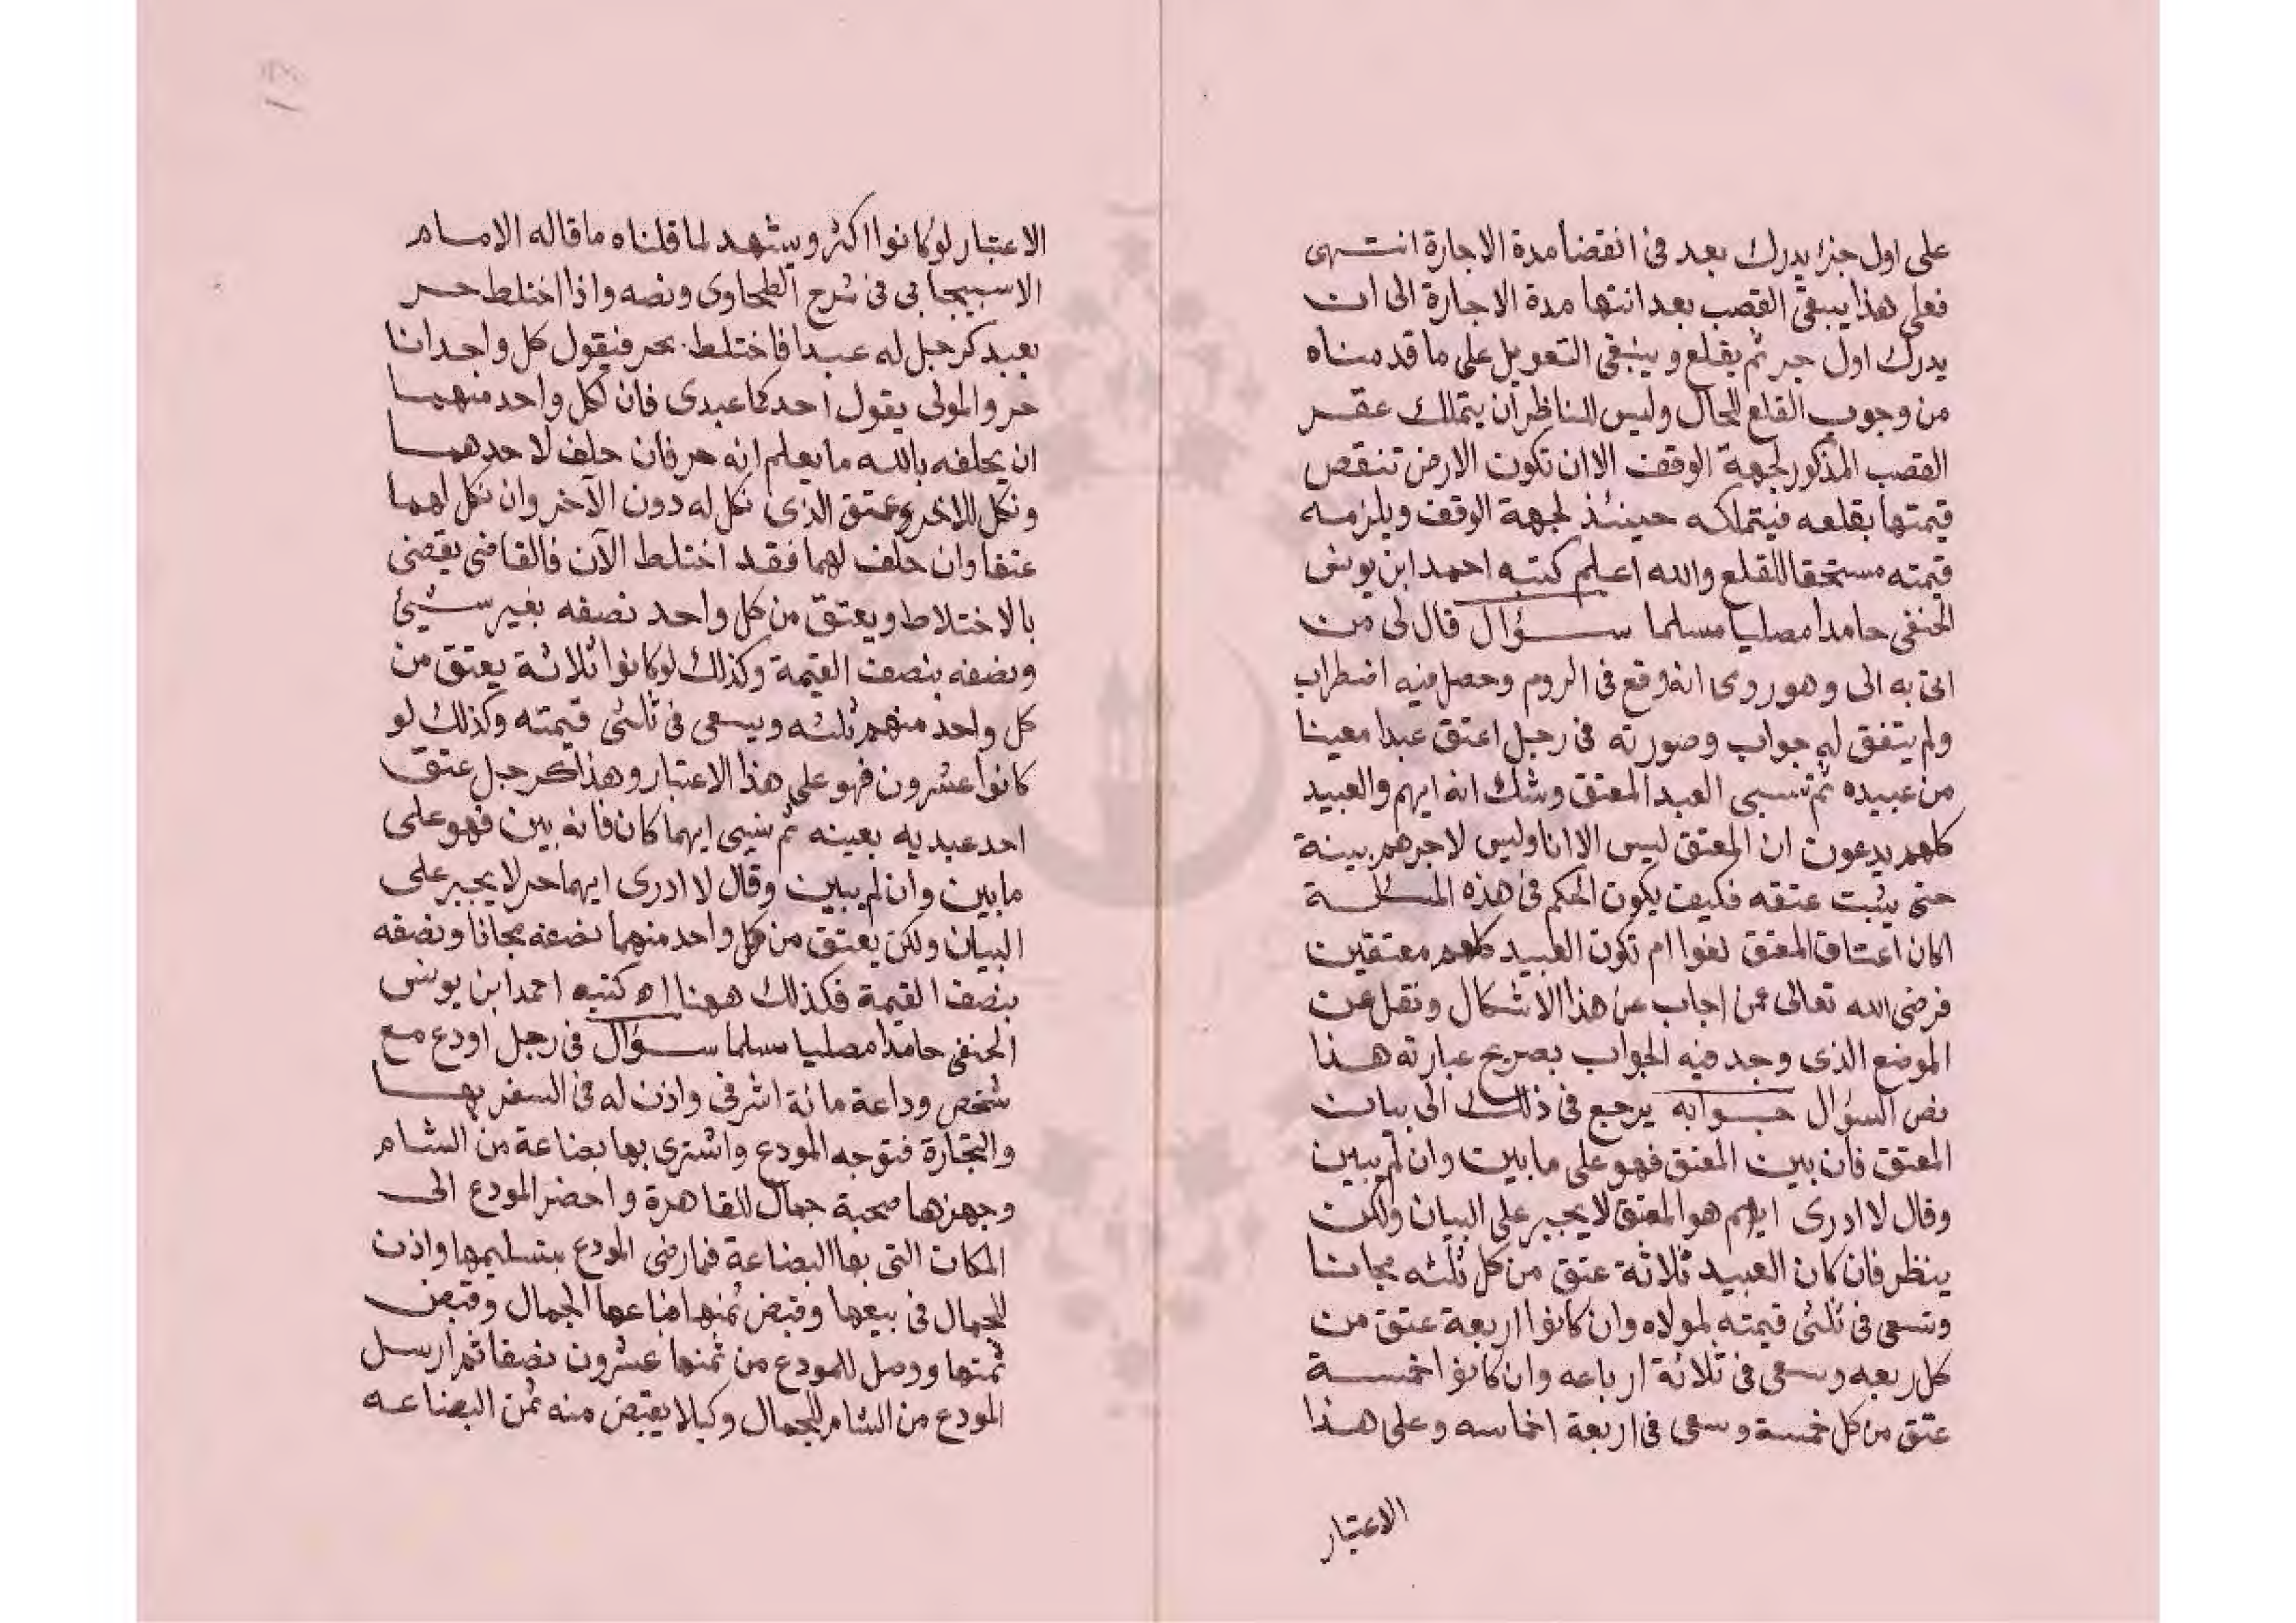 على اول جزء يدرك بعد فى انقضا مدة الاجارة انتهى
فعلى هذا يبقى القصب بعد انتها مدة الاجارة الى ان
يدرك اول جز ثم يقلع وينبغى التعويل على ما قدمناه
من وجوب القلع للحال وليس للناظر ان يتملك عقر
القصب المذكور لجهة الوقف الا ان تكون الارض تنقص
قيمتها بقلعه فيتملكه حينئذ لجهة الوقف ويلزمه
قيمته مستحقا للقلع والله اعلم كتبه احمد ابن يونس
الحنفى حامدا مصليا مسلما ســؤال قال لى من
اتى به الى وهو رومى انه وقع فى الروم وحصل فيه اضطراب
ولم يتفق له جواب وصورته فى رجل اعتق عبدا معينا
من عبيده ثم نسى العبد المعتق وشك انه ايهم والعبيد
كلهم يدعون ان المعتق ليس الا انا وليس لاحدهم بينة
حتى يثبت عتقه فكيف يكون الحكم فى هذه المسئلة
اكان اعتاق المعتق لغوا ام تكون العبيد كلهم معتقين
فرضى الله تعالى عمن اجاب عن هذا الاشكال ونقل عن
الموضع الذى وجد فيه الجواب بصريح عبارته هذا
نص السؤال جـوابه يرجع فى ذلك الى بيان
المعتق فان بين المعتق فهو على ما بين وان لم يبين
وقال لا ادرى ايهم هو المعتق لا يجبر على البيان ولكن
ينظر فان كان العبيد ثلاثة عتق من كل ثلثه مجانا
وتسعى فى ثلثى قيمته لمولاه وان كانوا اربعة عتق من
كل ربعه وسعى فى ثلاثة ارباعه وان كانوا خمسة
عتق من كل خمسه وسعى فى اربعة اخماسه وعلى هذا
الاعتبار
الاعتبار لو كانوا اكثر ويشهد لما قلناه ما قاله الامام
الاسبيجابى فى شرح الطحاوى ونصه واذا اختلط حر
بعبد كرجل له عبدا فاختلط بحر فيقول كل واحد انا
حر والمولى يقول احدكما عبدى فان لكل واحد منهما
ان يحلفه بالله ما يعلم انه حر فان حلف لاحدهما
ونكل للاخر عتق الذى نكل له دون الآخر وان نكل لهما
عتقا وان حلف لهما فقد اختلط الآن فالقاضى يقضى
بالاختلاط ويعتق من كل واحد نصفه بغير شيئ
ونصفه بنصف القيمة وكذلك لو كانوا ثلاثة يعتق من
كل واحد منهم ثلثه ويسعى فى ثلثى قيمته وكذلك لو
كانوا عشرون فهو على هذا الاعتبار وهذا كرجل عتق
احد عبديه بعينه ثم نسى ايهما كان فانه بين فهو على
ما بين وان لم يبين وقال لا ادرى ايهما حر لا يجبر على
البيان ولكن يعتق من كل واحد منهما نصفه مجانا ونصفه
بنصف القيمة فكذلك ههنا اه كتبه احمد ابن يونس
الحنفى حامدا مصليا مسلما ســؤال فى رجل اودع مع
شخص وداعة مائة اشرفى واذن له فى السفر بها
والتجارة فتوجه المودع واشترى بها بضاعة من الشام
وجهزها صحبة جمال للقاهرة واحضر المودع الى
المكان التى بها البضاعة فما رضى المودع بتسليمها واذن
للجمال فى بيعها وقبض ثمنها فباعها الجمال وقبض
ثمنها ووصل للمودع من ثمنها عشرون نصفا ثم ارسل
المودع من الشام للجمال وكيلا يقبض منه ثمن البضاعه